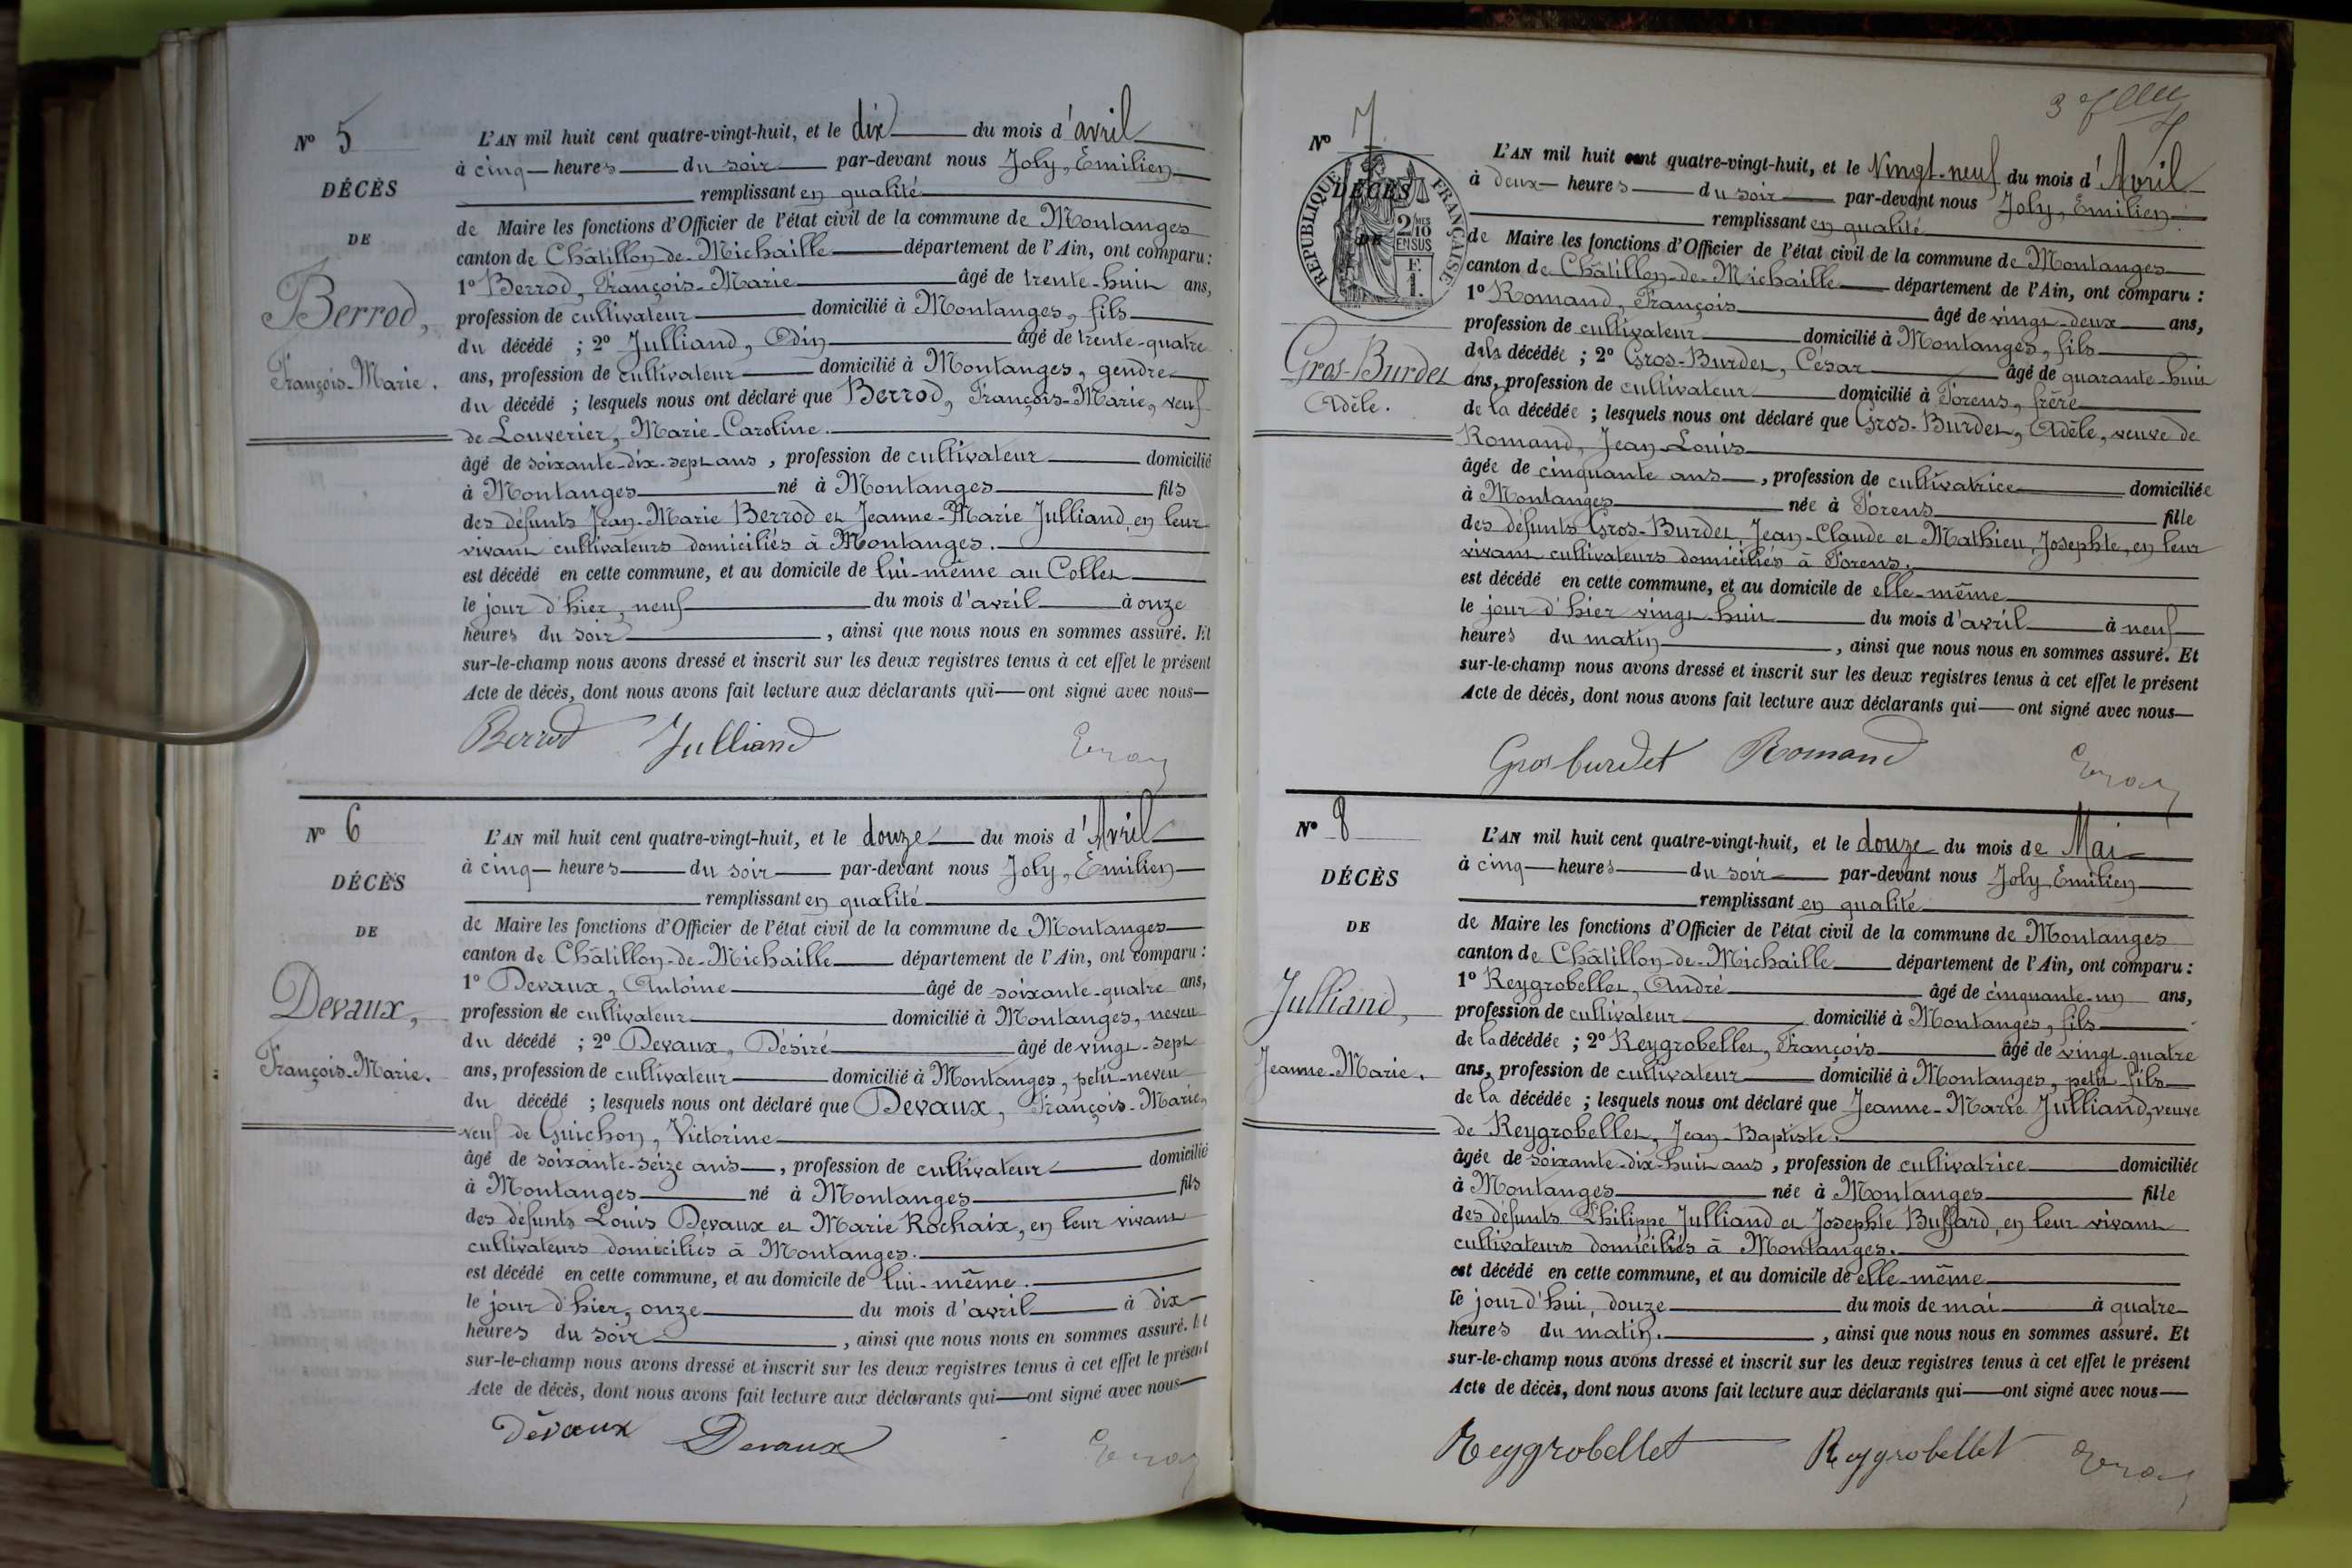 N° 5
DÉCÈS
DE
Berrod,
François-Marie.
L'AN mil huit cent quatre-vingt-huit, et le dix du mois d'avril
à cinq heures du soir par-devant nous Joly, Émilien
remplissant en qualité
de Maire les fonctions d'Officier de l'état civil de la commune de Montanges
canton de Châtillon-de-Michaille département de l'Ain, ont comparu :
1° Berrod, François-Marie âgé de trente-huit ans,
profession de cultivateur domicilié à Montanges, fils
du décédé ; 2° Julliand, Odin âgé de trente-quatre
ans, profession de cultivateur domicilié à Montanges, gendre
du décédé ; lesquels nous ont déclaré que Berrod, François-Marie, veuf
de Louverier, Marie-Caroline.
âgé de soixante-dix-sept ans, profession de cultivateur domicilié
à Montanges né à Montanges fils
des défunts Jean-Marie Berrod et Jeanne-Marie Julliand, en leur
vivant cultivateurs domiciliés à Montanges.
est décédé en cette commune, et au domicile de lui-même au Collet
le jour d'hier, neuf du mois d'avril à onze
heures du soir, ainsi que nous nous en sommes assuré. Et
sur-le-champ nous avons dressé et inscrit sur les deux registres tenus à cet effet le présent
Acte de décès, dont nous avons fait lecture aux déclarants qui ont signé avec nous
Berrod Julliand
N° 6
DÉCÈS
DE
Devaux,
François-Marie.
L'AN mil huit cent quatre-vingt-huit, et le douze du mois d'Avril
à cinq heures du soir par-devant nous Joly, Émilien
remplissant en qualité
de Maire les fonctions d'Officier de l'état civil de la commune de Montanges
canton de Châtillon-de-Michaille département de l'Ain, ont comparu :
1° Devaux, Antoine âgé de soixante-quatre ans,
profession de cultivateur domicilié à Montanges, neveu
du décédé ; 2° Devaux, Désiré âgé de vingt-sept
ans, profession de cultivateur domicilié à Montanges, petit-neveu
du décédé ; lesquels nous ont déclaré que Devaux, François-Marie,
veuf de Guichon, Victorine
âgé de soixante-seize ans, profession de cultivateur domicilié
à Montanges né à Montanges fils
des défunts Louis Devaux et Marie Rochaix, en leur vivant
cultivateurs domiciliés à Montanges.
est décédé en cette commune, et au domicile de lui-même.
le jour d'hier, onze du mois d'avril à dix
heures du soir, ainsi que nous nous en sommes assuré. Et
sur-le-champ nous avons dressé et inscrit sur les deux registres tenus à cet effet le présent
Acte de décès, dont nous avons fait lecture aux déclarants qui ont signé avec nous
Dévaux Devaux
N° 7
DÉCÈS
DE
RÉPUBLIQUE FRANÇAISE
2/10MES
EN SUS
F.
1.
Gros-Burdet
Adèle.
L'AN mil huit cent quatre-vingt-huit, et le Vingt-neuf du mois d'Avril
à deux heures du soir par-devant nous Joly, Émilien
remplissant en qualité
de Maire les fonctions d'Officier de l'état civil de la commune de Montanges
canton de Châtillon-de-Michaille département de l'Ain, ont comparu :
1° Romand, François âgé de vingt-deux ans,
profession de cultivateur domicilié à Montanges, fils
de la décédée ; 2° Gros-Burdet, César âgé de quarante-huit
ans, profession de cultivateur domicilié à Forens, frère
de la décédée ; lesquels nous ont déclaré que Gros-Burdet, Adèle, veuve de
Romand, Jean-Louis
âgée de cinquante ans, profession de cultivatrice domiciliée
à Montanges née à Forens fille
des défunts Gros-Burdet, Jean-Claude et Mathieu, Josephte, en leur
vivant cultivateurs domiciliés à Forens.
est décédé en cette commune, et au domicile de elle-même
le jour d'hier vingt-huit du mois d'avril à neuf
heures du matin, ainsi que nous nous en sommes assuré. Et
sur-le-champ nous avons dressé et inscrit sur les deux registres tenus à cet effet le présent
Acte de décès, dont nous avons fait lecture aux déclarants qui ont signé avec nous
Grosburdet Romand
N° 8
DÉCÈS
DE
Julliand,
Jeanne-Marie.
L'AN mil huit cent quatre-vingt-huit, et le douze du mois de Mai
à cinq heures du soir par-devant nous Joly, Émilien
remplissant en qualité
de Maire les fonctions d'Officier de l'état civil de la commune de Montanges
canton de Châtillon-de-Michaille département de l'Ain, ont comparu :
1° Reygrobellet, André âgé de cinquante-un ans,
profession de cultivateur domicilié à Montanges, fils
de la décédée ; 2° Reygrobellet, François âgé de vingt-quatre
ans, profession de cultivateur domicilié à Montanges, petit-fils
de la décédée ; lesquels nous ont déclaré que Jeanne-Marie Julliand, veuve
de Reygrobellet, Jean-Baptiste.
âgée de soixante-dix-huit ans, profession de cultivatrice domiciliée
à Montanges née à Montanges fille
des défunts Philippe Julliand et Josephte Buffard, en leur vivant
cultivateurs domiciliés à Montanges.
est décédé en cette commune, et au domicile de elle-même
le jour d'hui, douze du mois de mai à quatre
heures du matin., ainsi que nous nous en sommes assuré. Et
sur-le-champ nous avons dressé et inscrit sur les deux registres tenus à cet effet le présent
Acte de décès, dont nous avons fait lecture aux déclarants qui ont signé avec nous
Reygrobellet Reygrobellet